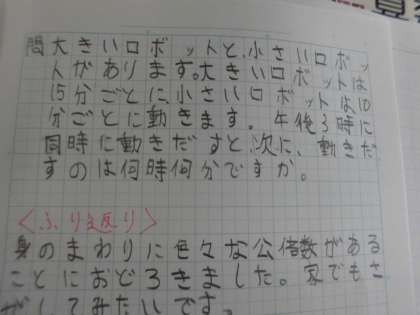 問大きいロボットと、小さいロボッ
トがあります。大きいロボットは
15分ごとに、小さいロボットは10
分ごとに動きます。午後3時に
同時に動きだすと、次に、動きだ
すのは何時何分ですか。
<ふり返り>
身のまわりに色々な公倍数がある
ことにおどろきました。家でもさ
がしてみたいです。